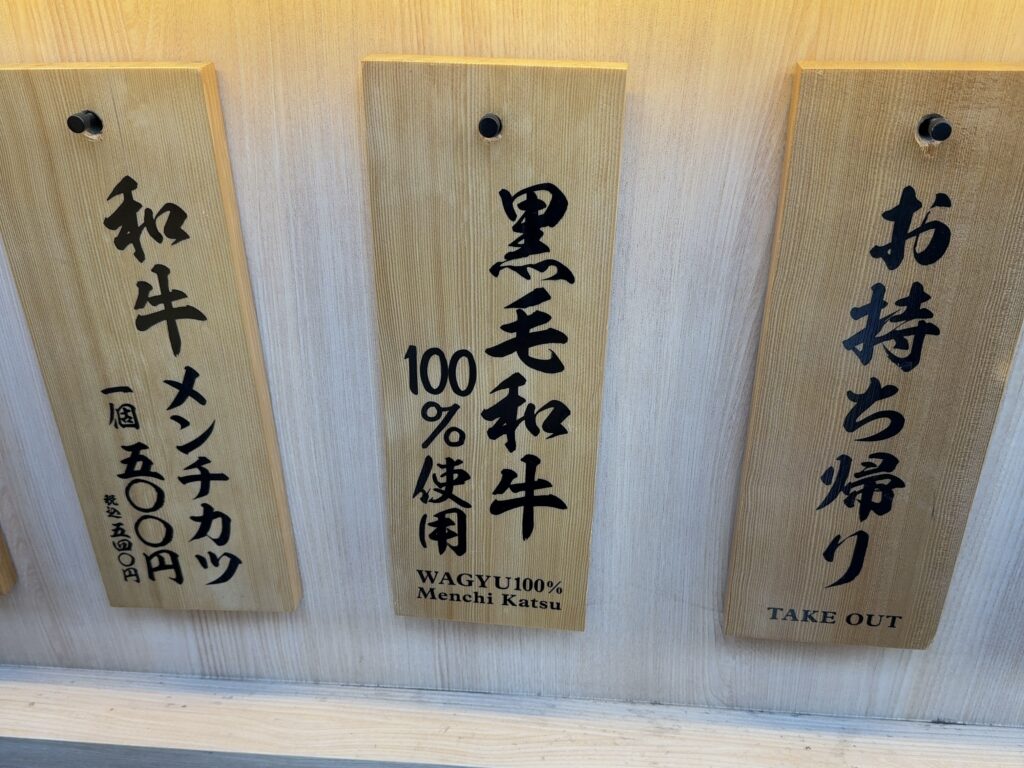 和牛
メンチカツ
一個 五〇〇円
税込 五四〇円
黒毛和牛
100%使用
WAGYU100%
Menchi Katsu
お持ち帰り
TAKE OUT